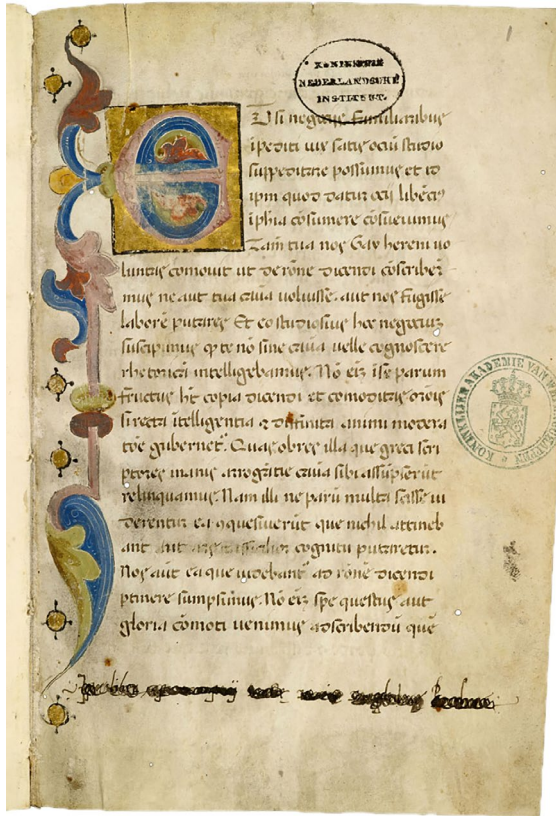 1
KONINKLIJK
NEDERLANDSCHE
INSTITUUT.
E Tsi negotiis familiaribus
ipediti vix satis ociū studio
suppeditare possumus et id
ipm quod datur ocij libēcius
iphia cōsumere cōsuevimus
Tam tua nos Gay herenni vo
luntas comovit ut de rōne dicendi cōscribe
mus ne aut tua causa voluisse aut nos fugisse
laborē putares Et eo studiosius hoc negocium
suscipimus q te nō sine causa velle cognoscere
rhetoricā intelligebamus. Nō eiz ise parum
fructus hēt copia dicendi et comoditas orōis
si recta itelligentia et diffinita animi modera
tōe gubernet. Quas obres illa que greci scri
ptores inanis arrogātie causa sibi assūpserūt
relinquamus. Nam illi ne parū multa scisse vi
derentur ea cquesiverūt que nichil attineb
ant cognitu putaretur.
Nos aūt ea que videbant ad rōnē dicendi
ptinere sumpsimus. Nō eiz spe questus aut
gloria cōmoti venimus adscribendū quē
KONINKLIJKE AKADEMIE VAN WETENSCHAPPEN